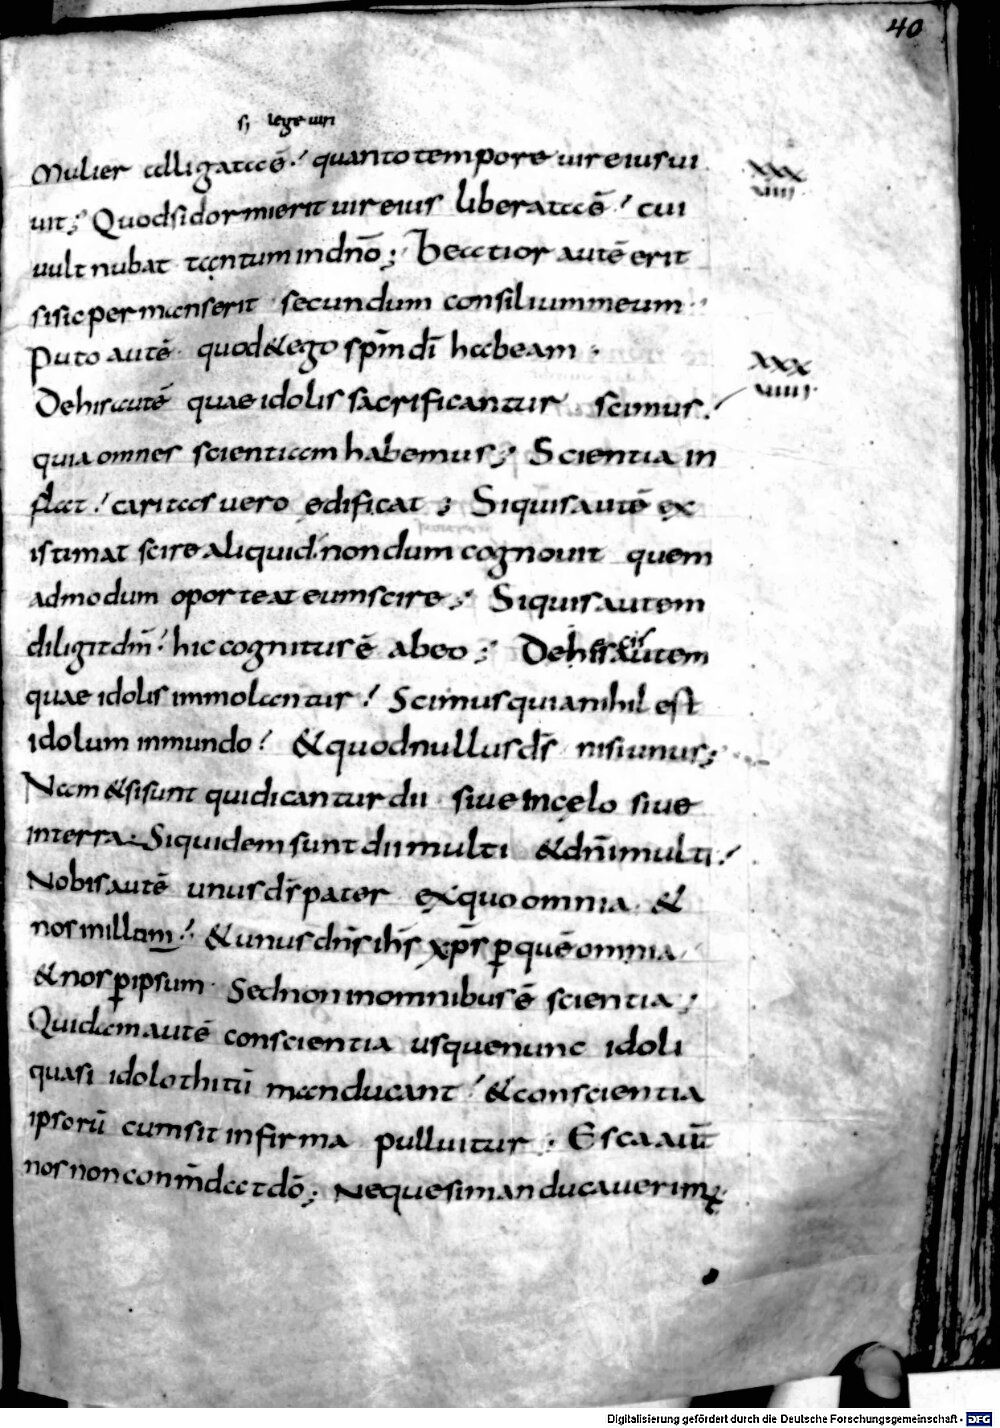 40
lege uiri
Mulier alligata ē quanto tempore uir eius ui
uit; Quod si dormierit uir eius liberata ē cui
uult nubat tantum in dño; Beatior autē erit
si sic permanserit secundum consilium meum
Puto autē quod & ego spm̄ dī habeam
xxx
uiiii
De his autē quae idolis sacrificantur scimus
xxx
uiiii
quia omnes scientiam habemus; Scientia in
flat caritas uero ędificat; Si quis autē ex
istimat scire aliquid nondum cognouit quem
admodum oporteat eum scire; Si quis autem
diligit dm̄ hic cognitus ē ab eo; De his autem
quae idolis immolantur Scimus quia nihil est
idolum in mundo & quod nullus ds̄ nisi unus;
Nam & si sunt qui dicantur dii siue in cęlo siue
in terra Siquidem sunt dii multi & dn̄i multi
Nobis autē unus ds̄ pater ex quo omnia &
nos in illam & unus dn̄s ihs̄ xps̄ ꝑ quē omnia
& nos ꝑ ipsum Sed non in omnibus ē scientia;
Quidam autē conscientia usque nunc idoli
quasi idolothitū manducant & conscientia
ipsorū cum sit infirma polluitur Esca aūt
nos non conm̄dat dō; Neque si manducauerim;
Digitalisierung gefördert durch die Deutsche Forschungsgemeinschaft - DFG